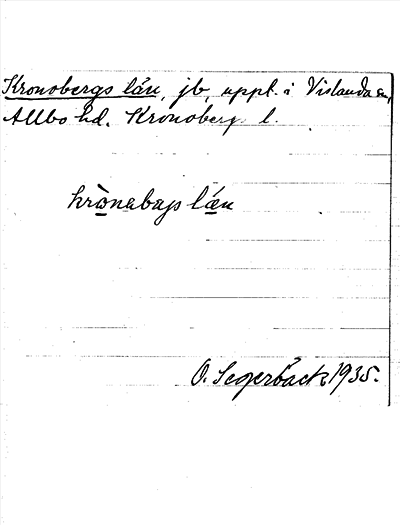 Kronobergs län, jb, uppt. i Vislanda sn,
Allbo hd. Kronoberg l.
kronabärjs län
O. Segerbäck 1935.